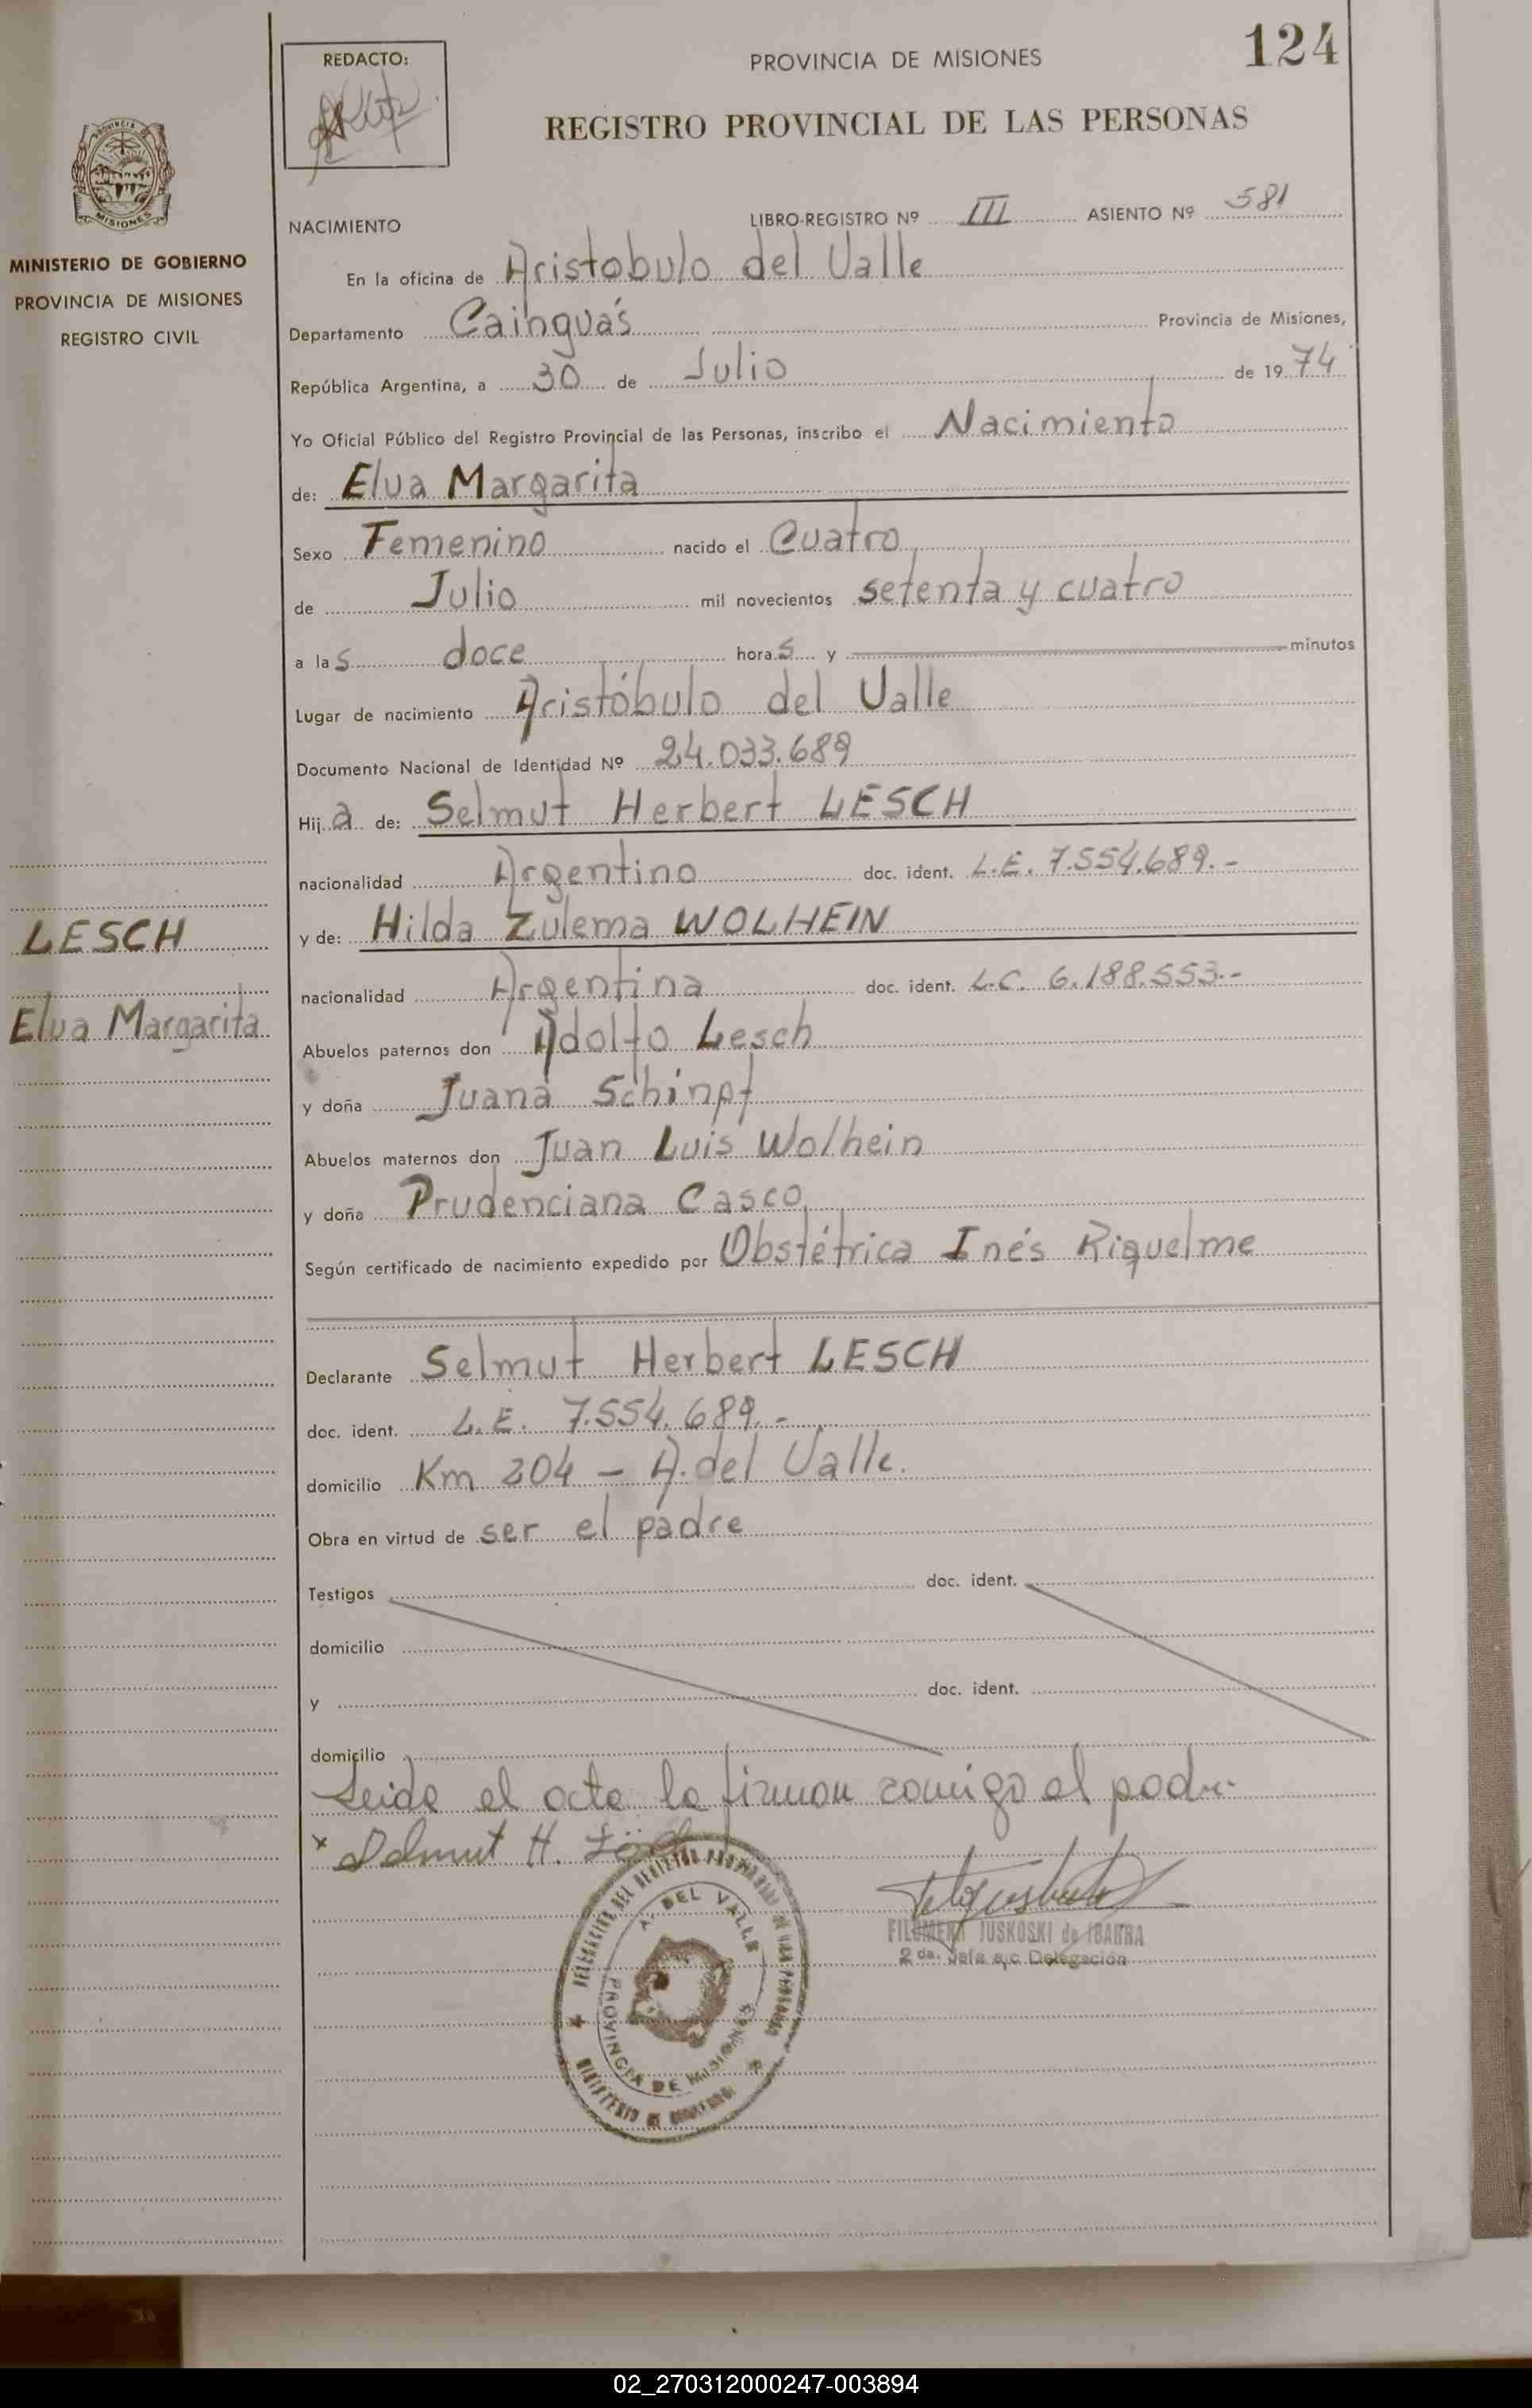 124
REDACTO:
PROVINCIA DE MISIONES
REGISTRO PROVINCIAL DE LAS PERSONAS
MISIONES
MINISTERIO DE GOBIERNO
PROVINCIA DE MISIONES
REGISTRO CIVIL
NACIMIENTO LIBRO-REGISTRO Nº III ASIENTO Nº 581
En la oficina de Aristobulo del Valle
Departamento Cainguás Provincia de Misiones,
República Argentina, a 30 de Julio de 1974
Yo Oficial Público del Registro Provincial de las Personas, inscribo el Nacimiento
de: Elva Margarita
Sexo Femenino nacido el Cuatro
de Julio mil novecientos setenta y cuatro
a las doce horas y minutos
Lugar de nacimiento Aristóbulo del Valle
Documento Nacional de Identidad Nº 24.033.689
Hija de: Selmut Herbert LESCH
nacionalidad Argentino doc. ident. L.E. 7.554.689.-
y de: Hilda Zulema WOLHEIN
nacionalidad Argentina doc. ident. L.C. 6.188.553.-
LESCH
Elva Margarita
Abuelos paternos don Adolfo Lesch
y doña Juana Schinpf
Abuelos maternos don Juan Luis Wolhein
y doña Prudenciana Casco
Según certificado de nacimiento expedido por Obstétrica Inés Riquelme
Declarante Selmut Herbert LESCH
doc. ident. L.E. 7.554.689.-
domicilio Km 204 - A. del Valle.
Obra en virtud de ser el padre
Testigos doc. ident.
domicilio
y doc. ident.
domicilio
Leida el acta la firman comigo el padre
x Selmut H.
DELEGACION DEL REGISTRO PROVINCIAL DE LAS PERSONAS
A. DEL VALLE
PROVINCIA DE MISIONES
MINISTERIO DE GOBIERNO
FILOMENA JUSKOSKI de IBARRA
2 da. Jefa a/c Delegación
02_270312000247-003894